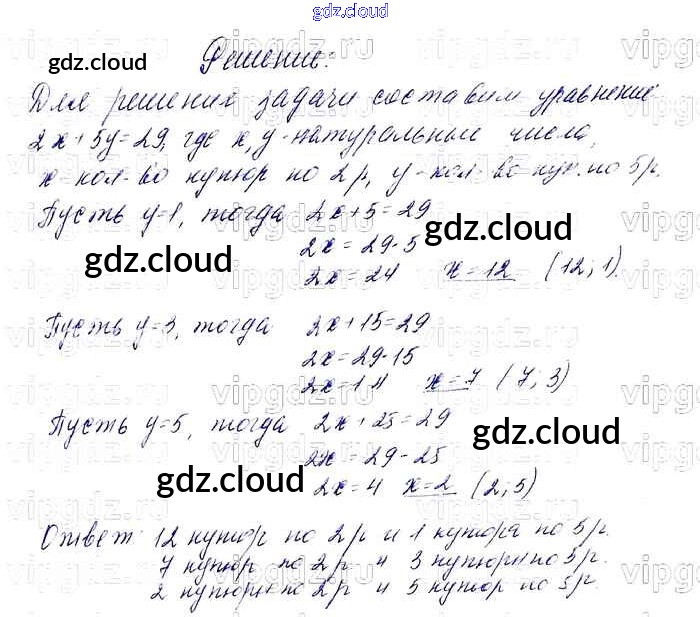 gdz.cloud
vipgdz.ru
Решение:
gdz.cloud
Для решения задачи составим уравнение
2x+5y=29, где x, y - натуральные числа,
x - кол-во купюр по 2 р, y - кол-во куп. по 5 р.
Пусть y=1, тогда 2x+5=29
gdz.cloud
2x=29-5
gdz.cloud
2x=24 x=12 (12; 1).
Пусть y=3, тогда 2x+15=29
2x=29-15
2x=14 x=7 (7; 3)
Пусть y=5, тогда 2x+25=29
gdz.cloud
2x=29-25
gdz.cloud
2x=4 x=2 (2; 5)
Ответ: 12 купюр по 2 р и 1 купюра по 5 р.
7 купюр по 2 р и 3 купюры по 5 р.
2 купюры по 2 р и 5 купюр по 5 р.